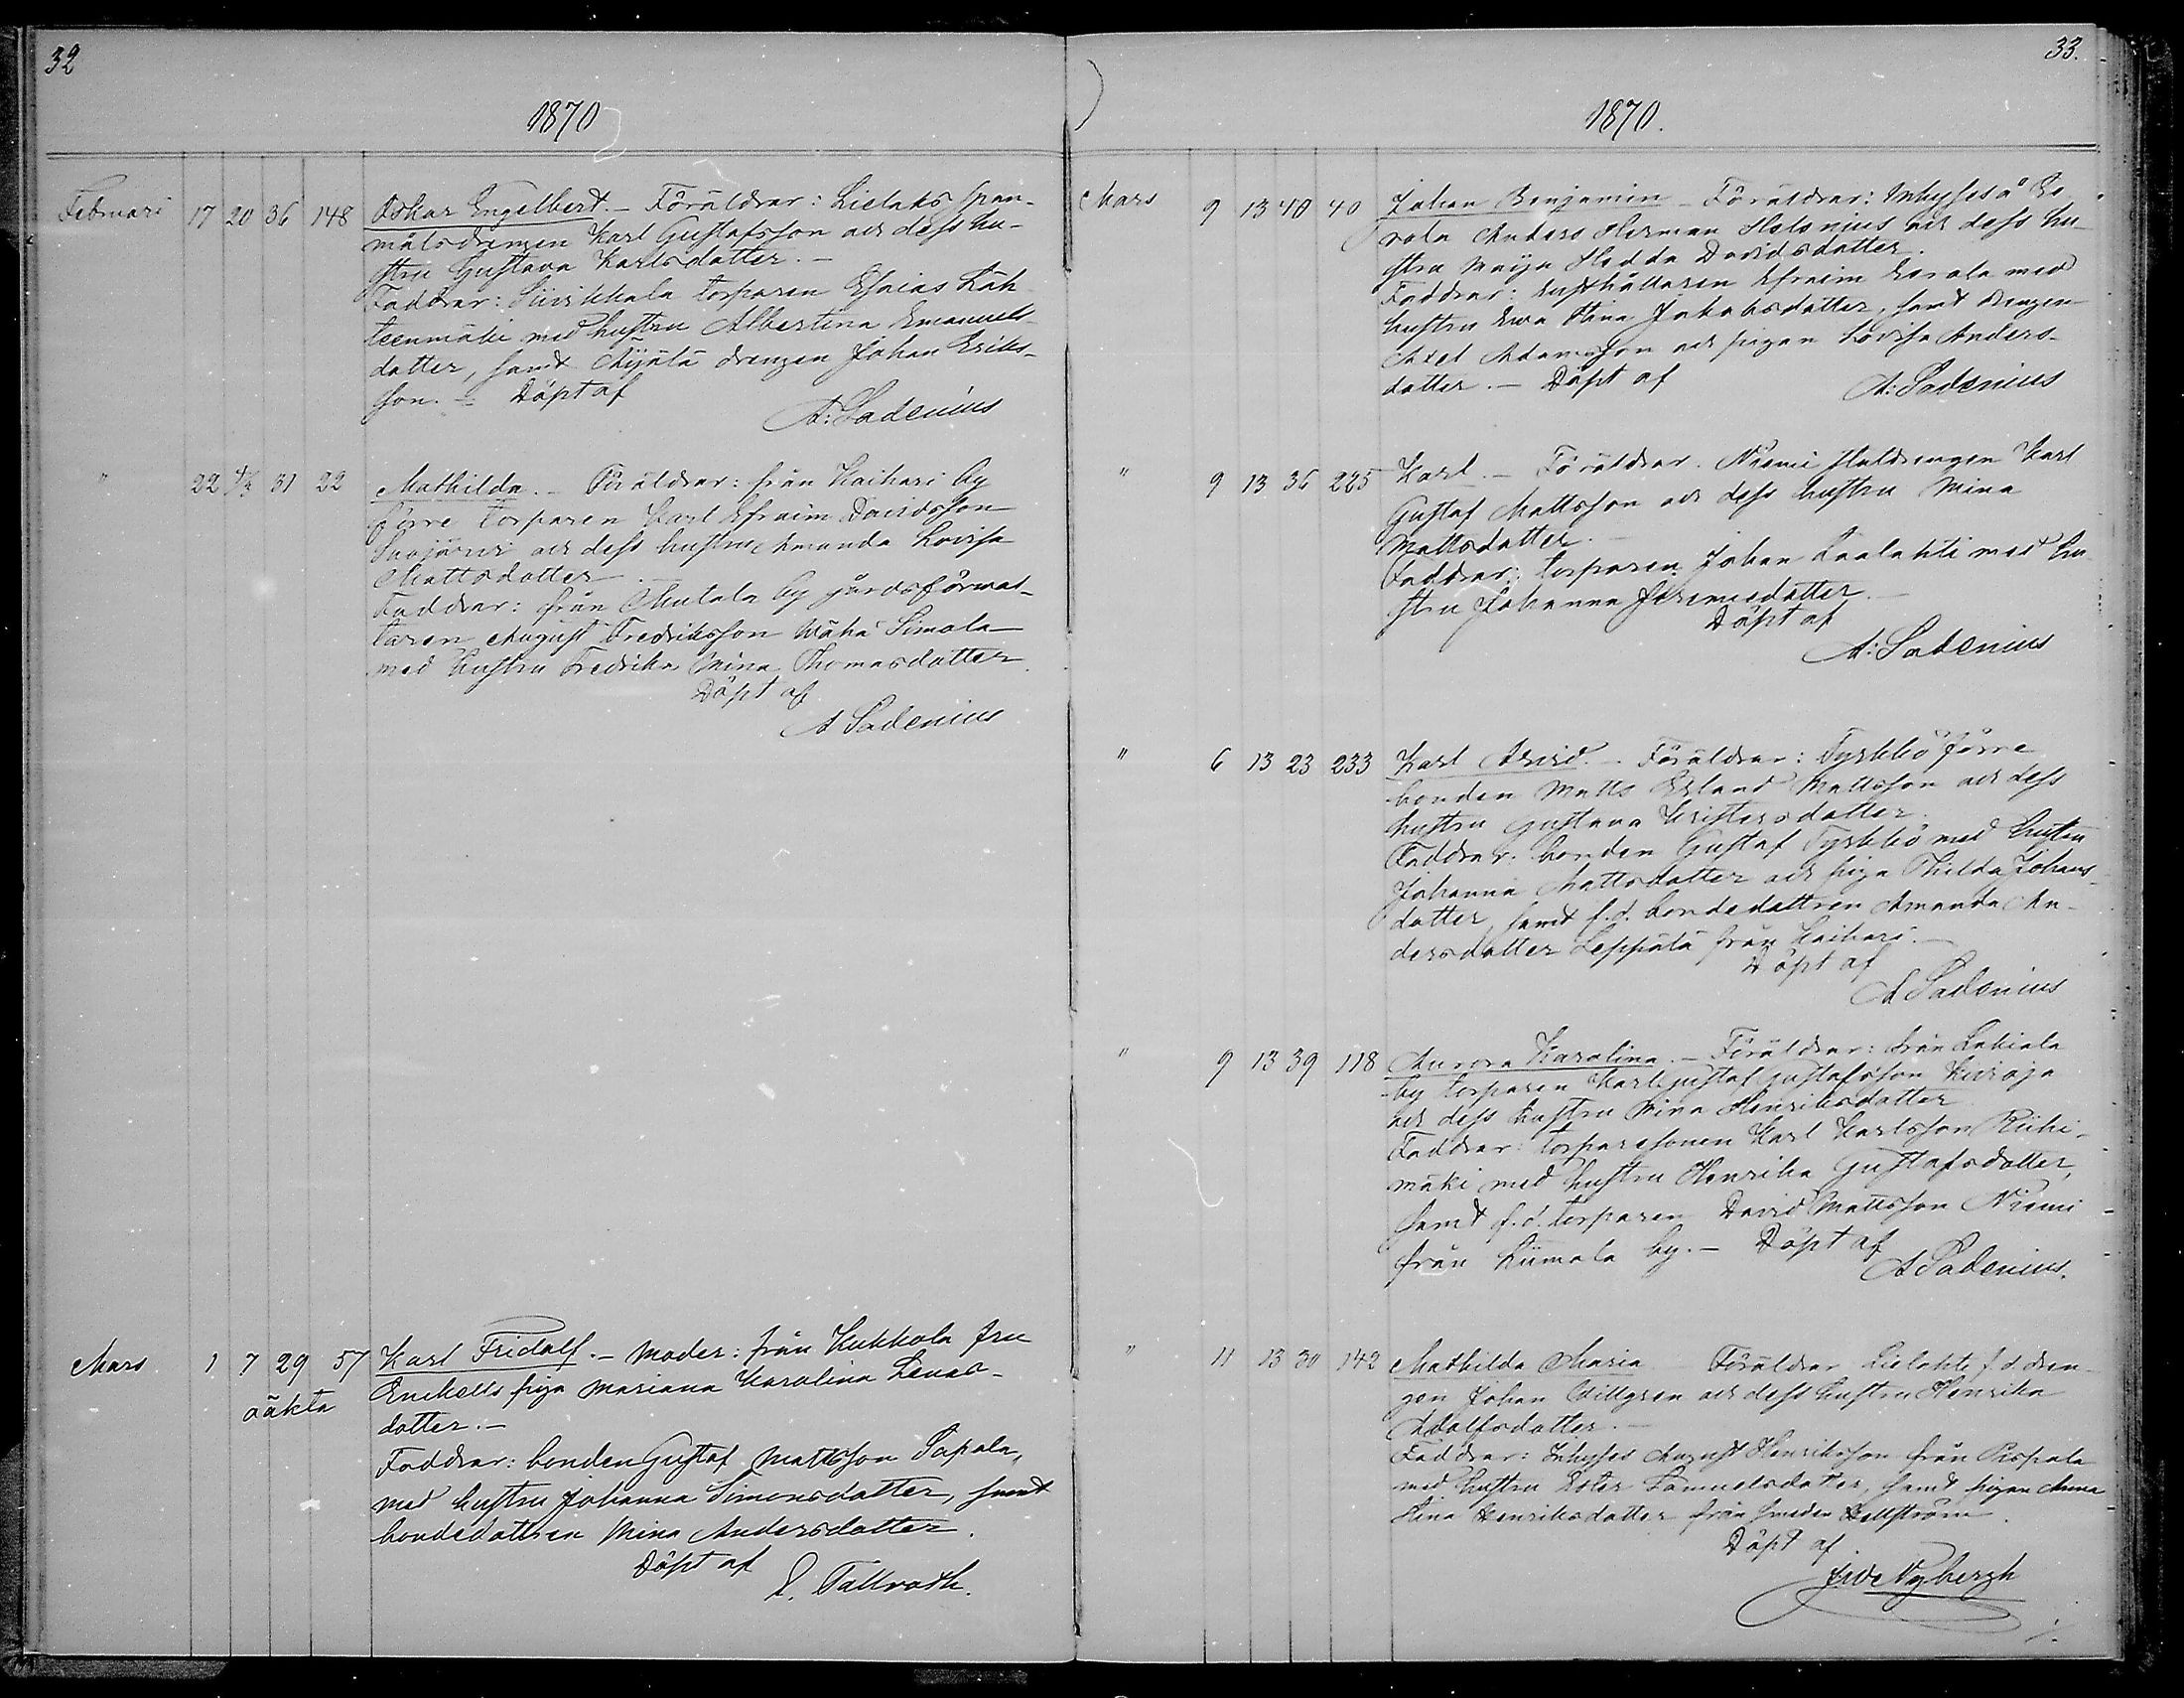 32
1870
Februari 17 20 36 148 Oskar Engelbert. - Föräldrar: Lielaks span-
målsdrengen Karl Gustafsson och dess hu-
stru Gustava Karlsdotter. -
Faddrar: Siivikkala torparen Esaias Läh-
teenmäki med hustru Albertina Emanuels-
dotter, samt drengen Johan Eriks-
son. - Döpt af
A: Sadenius
" 22 4/3 31 22 Mathilda. - Föräldrar: från Kaihari by
förre torparen Karl Efraim Davidsson
Saajärvi och dess hustru Amanda Lovisa
Mattsdotter. -
Faddrar: från Mutala by
August Fredriksson Wähä Simola
med hustru Fredrika Mina Thomasdotter
Döpt af
A Sadenius
Mars 1 7 29 57 Karl Fridolf. - Moder: från Kukkola fru
oäkta Enckells piga Mariana Karolina Lenas-
dotter. -
Faddrar: bonden Gustaf Mattsson Papala,
med hustru Johanna Simonsdotter, samt
bondedottren Mina Andersdotter.
Döpt af
L. Tallroth.
33.
1870.
Mars 9 13 40 40 Johan Benjamin - Föräldrar: Inhyses å Ee
rola Anders Herman Helenius och dess hu-
stru Maija Hedda Davidsdotter.
Faddrar: Efraim Eerola med
hustru Ewa Stina Jakobsdotter, samt drengen
Axel Adamsson och pigan Lovisa Anders-
dotter. - Döpt af
A: Sadenius
" 9 13 36 225 Karl. - Föräldrar. Niemi statdrengen Karl
Gustaf Mattsson och dess hustru Mina
Mattsdotter. -
Faddrar: torparen Johan Laalahti med hu
stru Johanna Jeremiedotter. -
Döpt af
A: Sadenius
" 6 13 23 233 Karl Arvid. - Föräldrar: Tyrkkö förre
bonden Matts Erland Mattsson och dess
hustru Gustava Kristersdotter.
Faddrar: bonden Gustaf Tyrkkö med hustru
Johanna Mattsdotter och piga Thilda Johans-
dotter, samt f.d. bondedottren Amanda An-
dersdotter Leppälä från Kaihari. -
Döpt af
A Sadenius
" 9 13 39 118 Aurora Karolina. - Föräldrar: från Lakiala
by torparen Karl Gustaf Gustafsson Kuroja
och dess hustru Mina Henriksdotter
Faddrar: torparesonen Karl Karlsson Riihi-
mäki med hustru Henrika Gustafsdotter,
samt f.d. torparen David Mattsson Niemi
från Kiimala by. - Döpt af
A Sadenius.
" 11 13 30 142 Mathilda Maria Föräldrar Lielahti f.d. dren-
gen Johan Willgren och dess hustru Henrika
Adolfsdotter. -
Faddrar: Inhyses August Henriksson från Pispala
med hustru Ester Samuelsdotter, samt pigan Anna
Stina Henriksdotter från smeden Hellström.
Döpt af
Nybergh